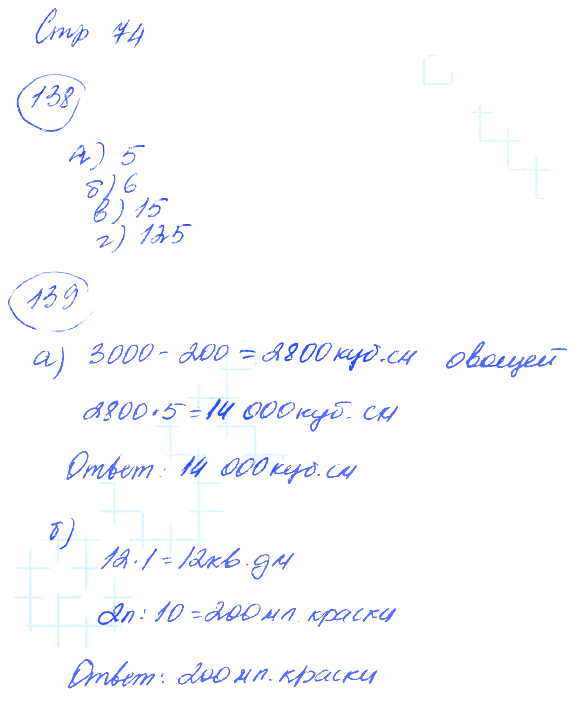 Стр 74
138
а) 5
б) 6
в) 15
г) 125
139
а) 3000 - 200 = 2800 куб.см овощей
2800 · 5 = 14 000 куб. см
Ответ: 14 000 куб.см
б)
12 · 1 = 12 кв. дм
2л : 10 = 200 мл. краски
Ответ: 200 мл. краски